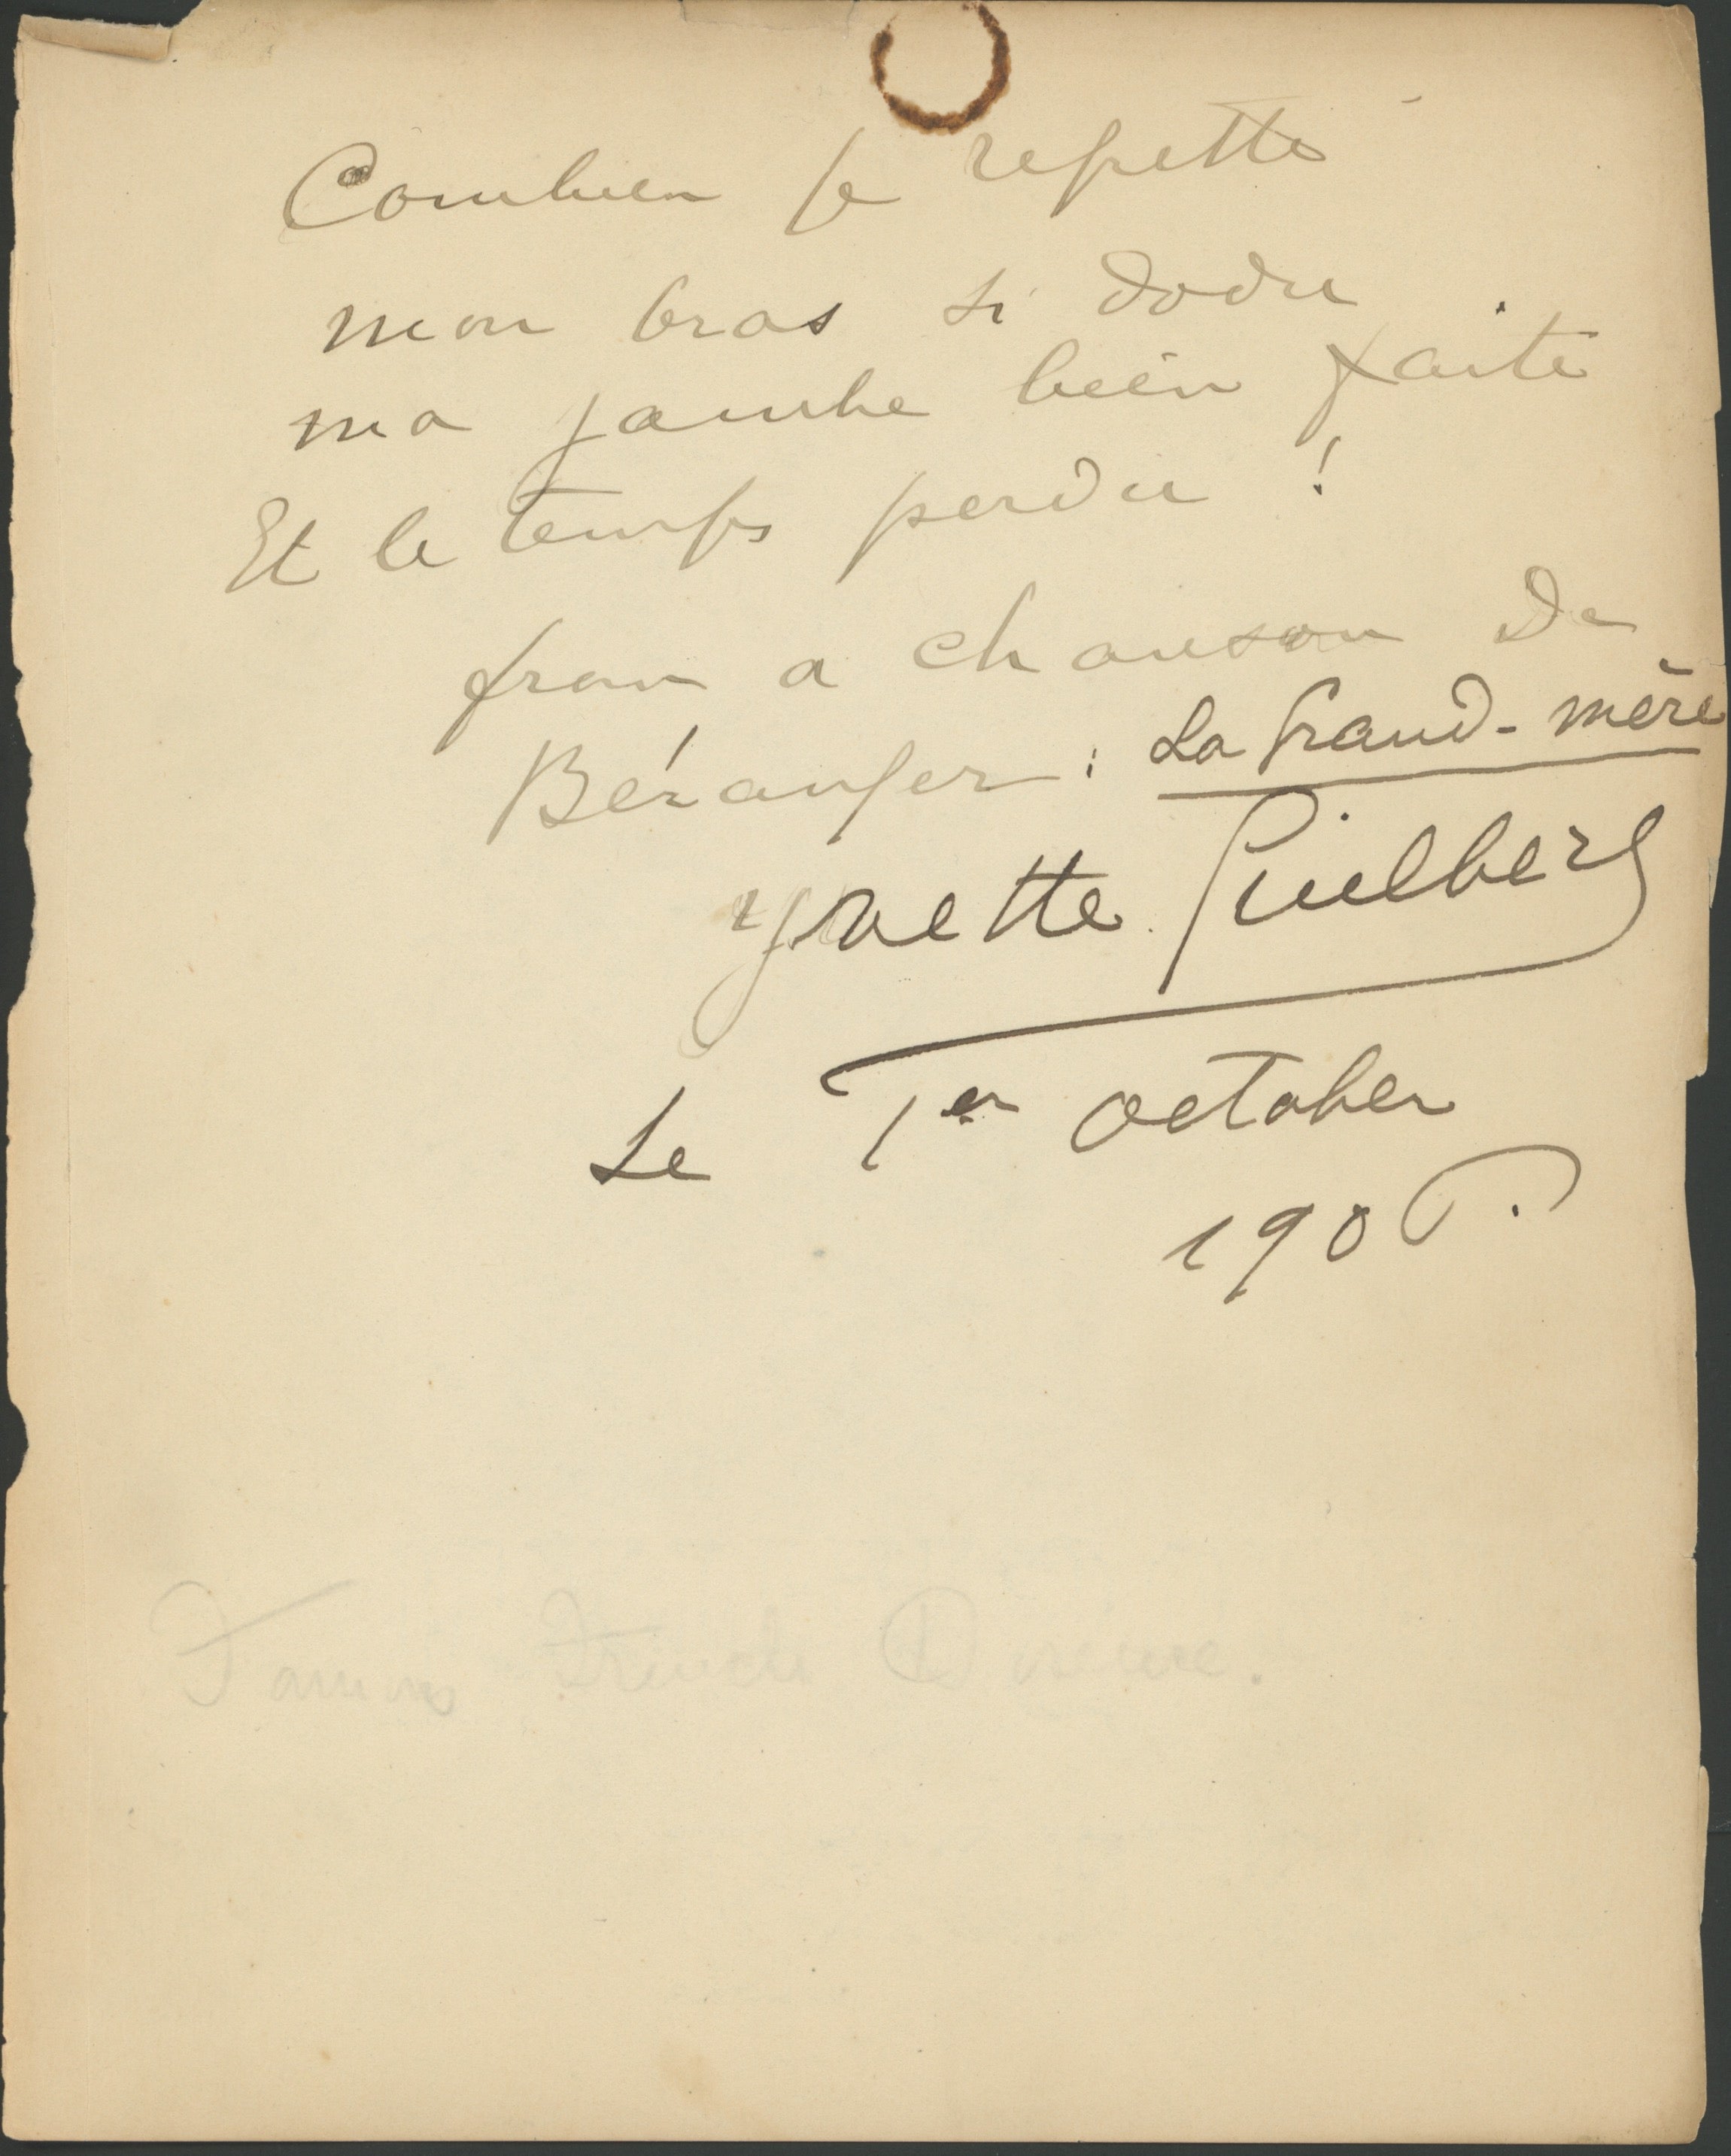 Combien je regrette
mon bras si dodu
ma jambe bien faite
Et le temps perdu !
from a chanson de
Béranger : La Grand-mère
Yvette Guilbert
Le 1er october
190
Famous French Diseuse.